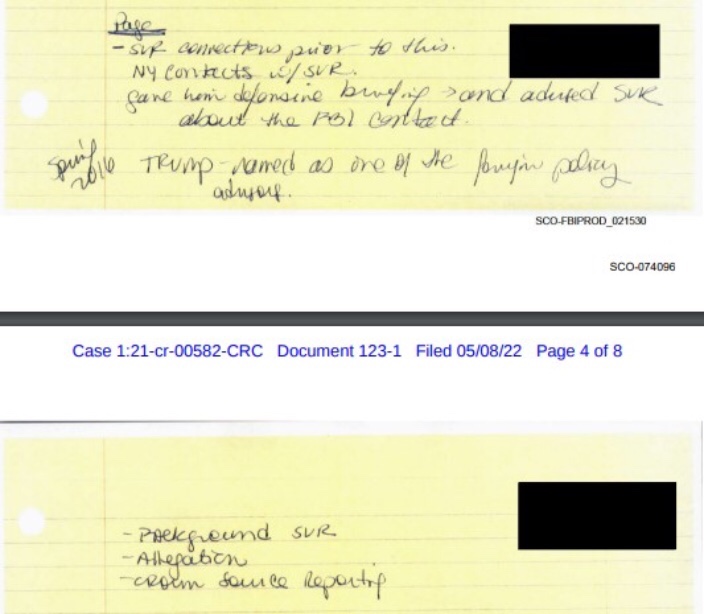 Page
- SVR connections prior to this.
NY Contacts w/ SVR.
gave him defensive briefing > and advised SVR
about the FBI contact.
Spring
2016
TRUMP - named as one of the foreign policy
advisors.
SCO-FBIPROD_021530
SCO-074096
Case 1:21-cr-00582-CRC Document 123-1 Filed 05/08/22 Page 4 of 8
- Background SVR
- Allegation
- CROWN Source Reporting